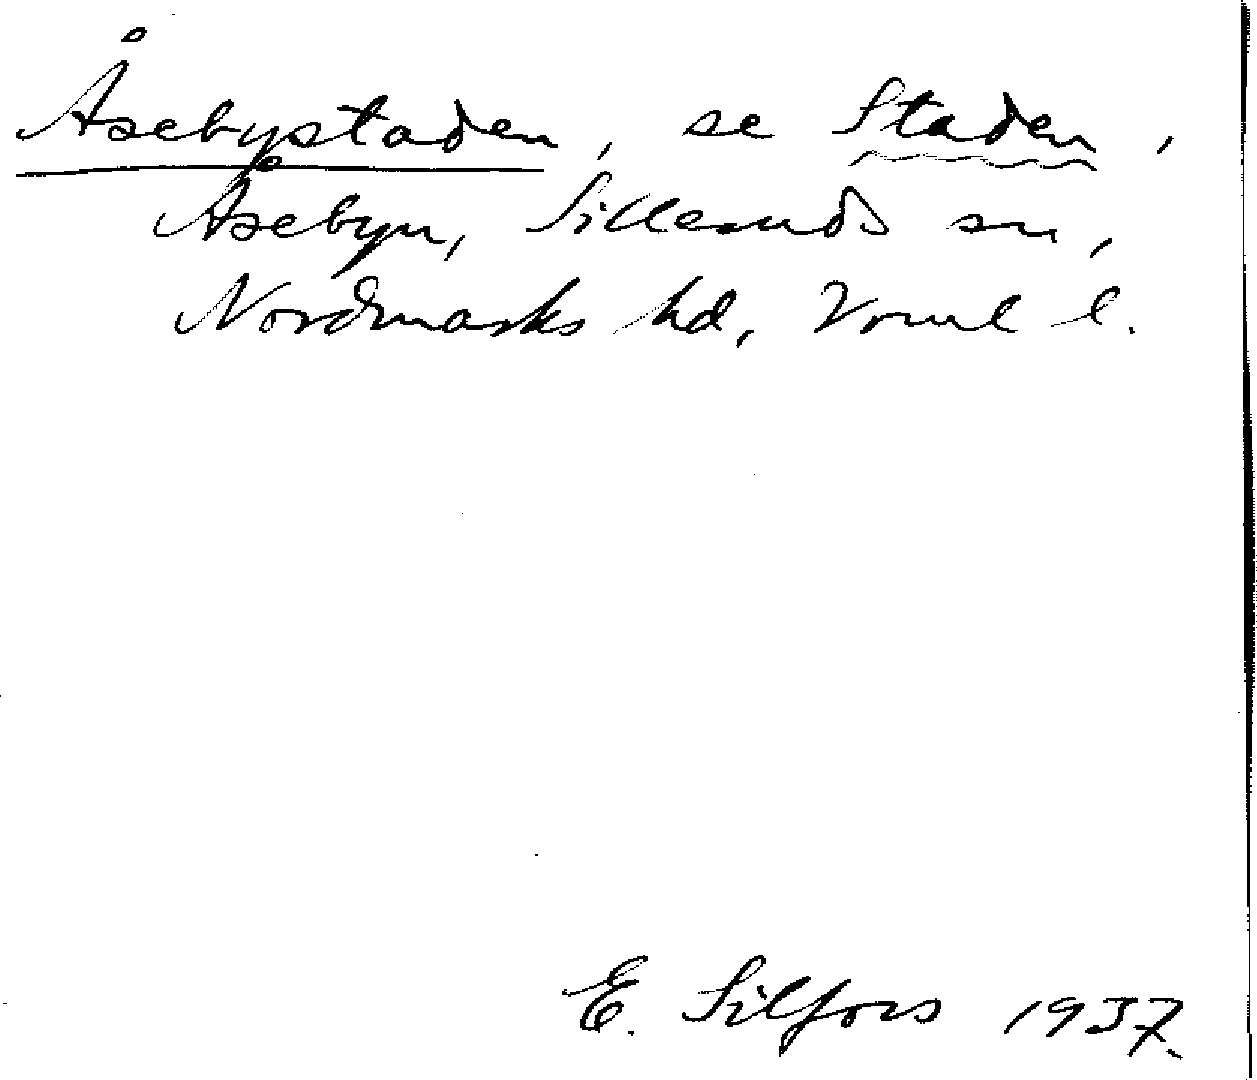 Åsebystaden, se Staden,
Åsebyn, Silleruds sn,
Nordmarks hd, Vrml l.
E. Silfors 1937.